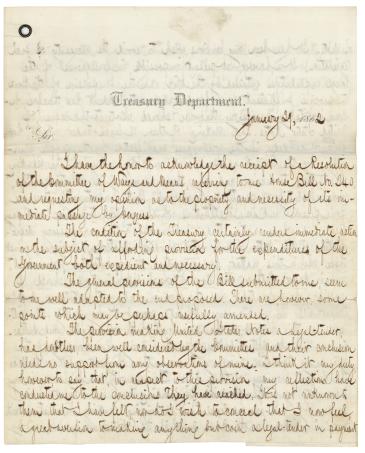 Treasury Department.
January 29, 1862
Sir,
I have the honor to acknowledge the receipt of a Resolution
of the Committee of Ways and Means referring to me House Bill No. 240
and requesting my opinion as to the propriety and necessity of its im-
mediate passage by Congress.
The condition of the Treasury certainly renders immediate action
on the subject of affording provision for the expenditures of the
Government both expedient and necessary.
The general provisions of the Bill submitted to me, seem
to me well adapted to the end proposed. There are, however, some
points which may be perhaps usefully amended.
The provision making United States Notes a legal tender,
has doubtless been well considered by the Committee and their conclusion
needs no support from any observations of mine. I think it my duty,
however to say that in respect to this provision my reflections have
conducted me to the conclusions they have reached. It is not unknown to
them that I have felt, nor do I wish to conceal that I now feel
a great aversion to making anything but coin a legal tender in payment